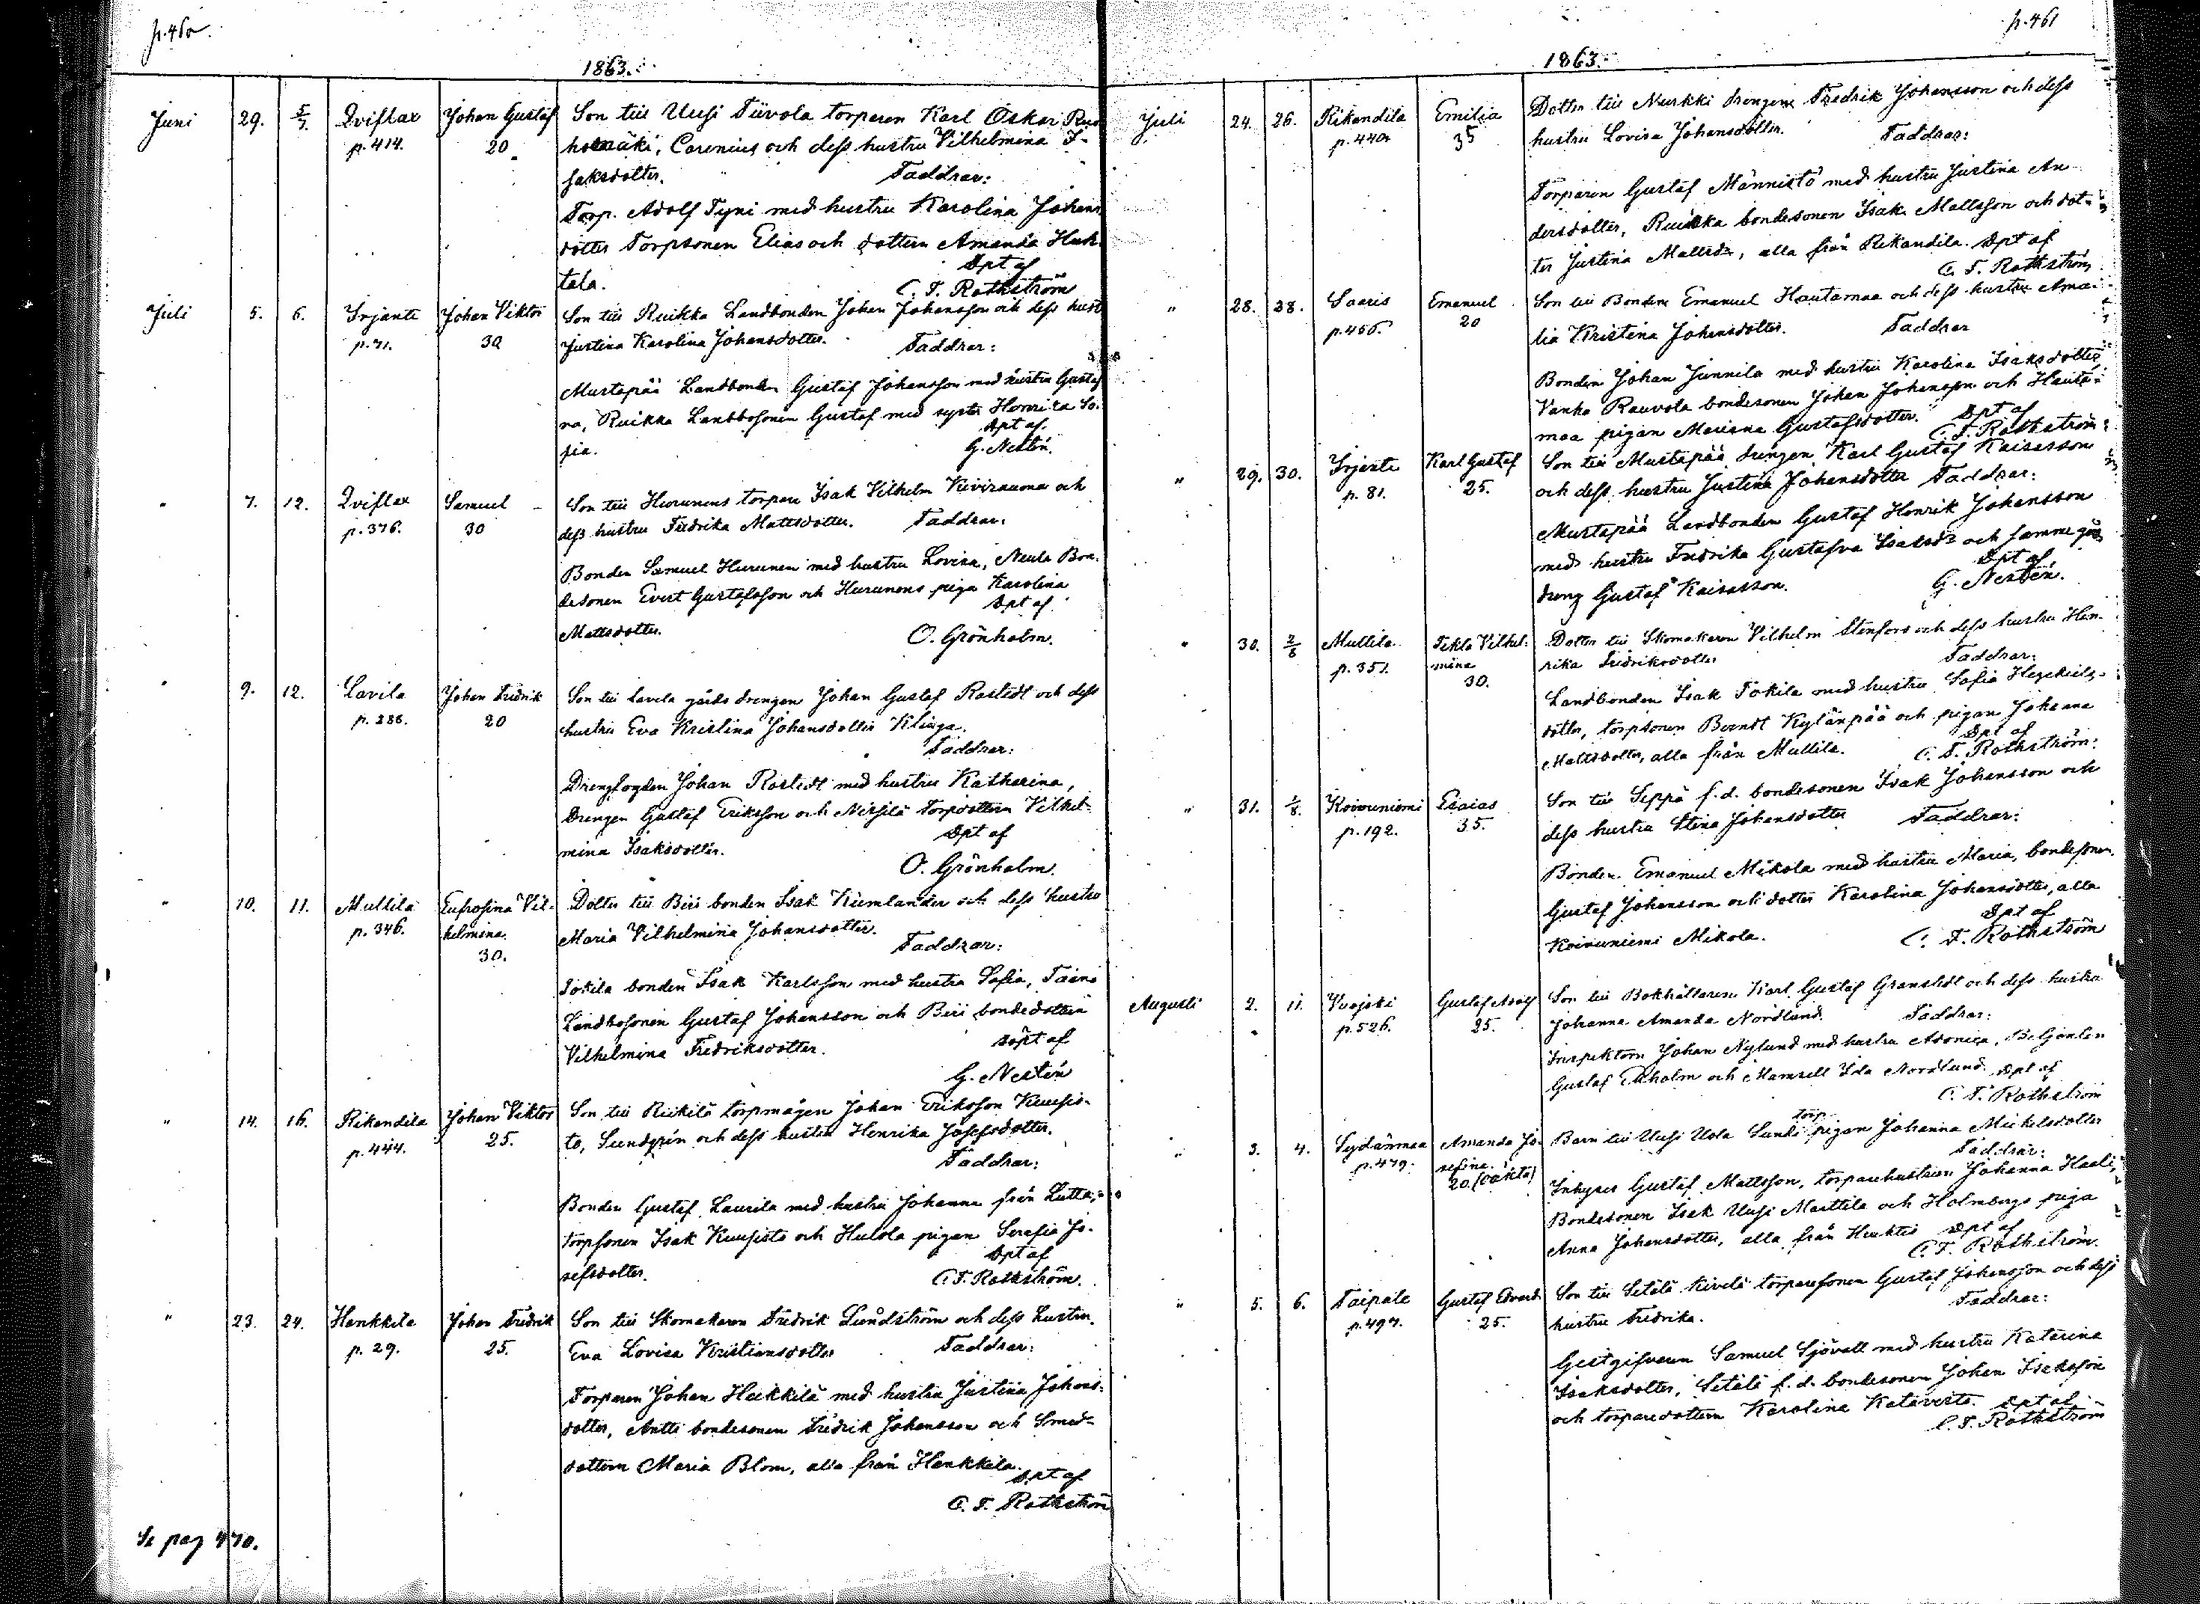 p. 460
1863.
Juni 29. 5/7. Qviflax Johan Gustaf Son till Uusi Tiivola torparen Karl Oskar
p. 414. 20 Carenius och dess hustru Vilhelmina I-
saksdotter. Faddrar:
Torp. Adolf Tyni med hustru Karolina Johans
dotter Torpsonen Elias och dottern Amanda Huh-
tala. Dpt af
C. F. Rothström
Juli 5. 6. Irjante Johan Viktor Son till Ruikka Landbonden Johan Johansson och dess hust
p. 71. 30 Justina Karolina Johansdotter. Faddrar:
Mustapää Landbonden Gustaf Johansson med hustru Gustaf
va, Ruikka Landbosonen Gustaf med syster Henrika So-
fia. Dpt af
G. Nestén.
" 7. 12. Qviflax Samuel Son till Hurunens torpare Isak Vilhelm Kiviranona och
p. 376. 30 dess hustru Fredrika Mattsdotter. Faddrar:
Bonden Samuel Hurunen med hustru Lovisa, Neula Bon-
desonen Evert Gustafsson och Hurunens piga Karolina
Mattsdotter. Dpt af
O. Grönholm.
" 9. 12. Lavila Johan Fredrik Son till Lavila gårds drengen Johan Gustaf Rostedt och dess
p. 286. 20 hustru Eva Kristina Johansdotter Klinga.
Faddrar:
Drengfogden Johan Rostedt med hustru Katharina,
Drengen Gustaf Eriksson och Nirsilä torpdottern Vilhel-
mina Isaksdotter. Dpt af
O. Grönholm.
" 10. 11. Mullila Eufrosina Vil- Dotter till Biri bonden Isak Kumlander och dess hustru
p. 346. helmina. Maria Vilhelmina Johansdotter.
30. Faddrar:
Tokila bonden Isak Karlsson med hustru Sofia,
Landbosonen Gustaf Johansson och Biri bondedottern
Vilhelmina Fredriksdotter. döpt af
G. Nestén
" 14. 16. Rikandila Johan Viktor Son till Rikilä torpmågen Johan Eriksson Kuusis-
p. 444. 25. to, Sundqvin och dess hustru Henrika Josefsdotter.
Faddrar:
Bonden Gustaf Laurila med hustru Johanna från Lutta,
torpsonen Isak Kuusisto och Hulola pigan Serafia Jo-
sefsdotter. Dpt af
C. F. Rothström.
" 23. 24. Hankkila Johan Fredrik Son till Skomakaren Fredrik Lundström och dess hustru
p. 29. 25. Eva Lovisa Kristiansdotter Faddrar:
Torparen Johan Hakkilä med hustru Justina Johans-
dotter, Antti bondesonen Fredrik Johansson och Smed-
dottern Maria Blom, alla från Hankkila.
Dpt af
C. F. Rothström
Se pag 470.
p. 461
1863.
Juli 24. 26. Rikandila Emilia Dotter till Nurkki drengen Fredrik Johansson och dess
p. 440. 35 hustru Lovisa Johansdotter. Faddrar:
Torparen Gustaf Männistö med hustru Justina An-
dersdotter, Ruikka bondesonen Isak Mattsson och dot-
ter Justina Mattsdr, alla från Rikandila. Dpt af
C. F. Rothström
" 28. 28. Saaris Emanuel Son till Bonden Emanuel Hautamaa och dess hustru Ama-
p. 456. 20 lia Kristina Johansdotter. Faddrar
Bonden Johan Junnila med hustru Karolina Isaksdotter
Vanha Rauvola bondesonen Johan Johansson och Hauta-
maa pigan Mariana Gustafsdotter. Dpt af
C. F. Rothström
" 29. 30. Irjante Karl Gustaf Son till Mustapää drengen Karl Gustaf Kaisasson
p. 81. 25. och dess hustru Justina Johansdotter Faddrar:
Mustapää Landbonden Gustaf Henrik Johansson
med hustru Fredrika Gustafva Isaksdr och samme går
dreng Gustaf Kaisasson. Dpt af
G. Nestén.
" 30. 2/8 Mullila. Tekla Vilhel- Dotter till Skomakaren Vilhelm Stenfors och dess hustru Hen-
p. 351. mina rika Fredriksdotter Faddrar:
30. Landbonden Isak Tokila med hustru Sofia Hezekiels-
dotter, torpsonen Berndt Kylänpää och pigan Johanna
Mattsdotter, alla från Mullila. Dpt af
C. F. Rothström.
" 31. 1/8. Koivuniemi Esaias Son till Seppä f.d. bondesonen Isak Johansson och
p. 192. 35. dess hustru Stina Johansdotter Faddrar:
Bonden Emanuel Mikola med hustru Maria, bondesonen
Gustaf Johansson och dotter Karolina Johansdotter, alla
Koivuniemi Mikola. Dpt af
C. F. Rothström
Augusti 2. 11. Vuojoki Gustaf Adolf Son till Bokhållaren Karl Gustaf Granstedt och dess hustru
p. 526. 25. Johanna Amanda Nordlund. Faddrar:
Inspektorn Johan Nylund med hustru
Gustaf Ekholm och Mamsell Ida Nordlund. Dpt af
C. F. Rothström
" 3. 4. Sydänmaa Amanda Jo- Barn till Uusi Uola Sundi torp pigan Johanna Mickelsdotter
p. 479. sefina. Faddrar:
20. (oäkta) Inhyses Gustaf Mattsson, torparehustrun Johanna Haali,
Bondesonen Isak Uusi Marttila och Holmbergs piga
Anna Johansdotter, alla från Huhtis Dpt af
C. F. Rothström.
" 5. 6. Taipale Gustaf Edvard Son till Setälä Kivelä torparesonen Gustaf Johansson och dess
p. 497. 25. hustru Fredrika. Faddrar:
Gestgifvaren Samuel Sjövall med hustru Katarina
Isaksdotter, Setälä f.d. bondesonen Johan Isaksson
och torparedottern Karolina Katavisto. Dpt af
C. F. Rothström